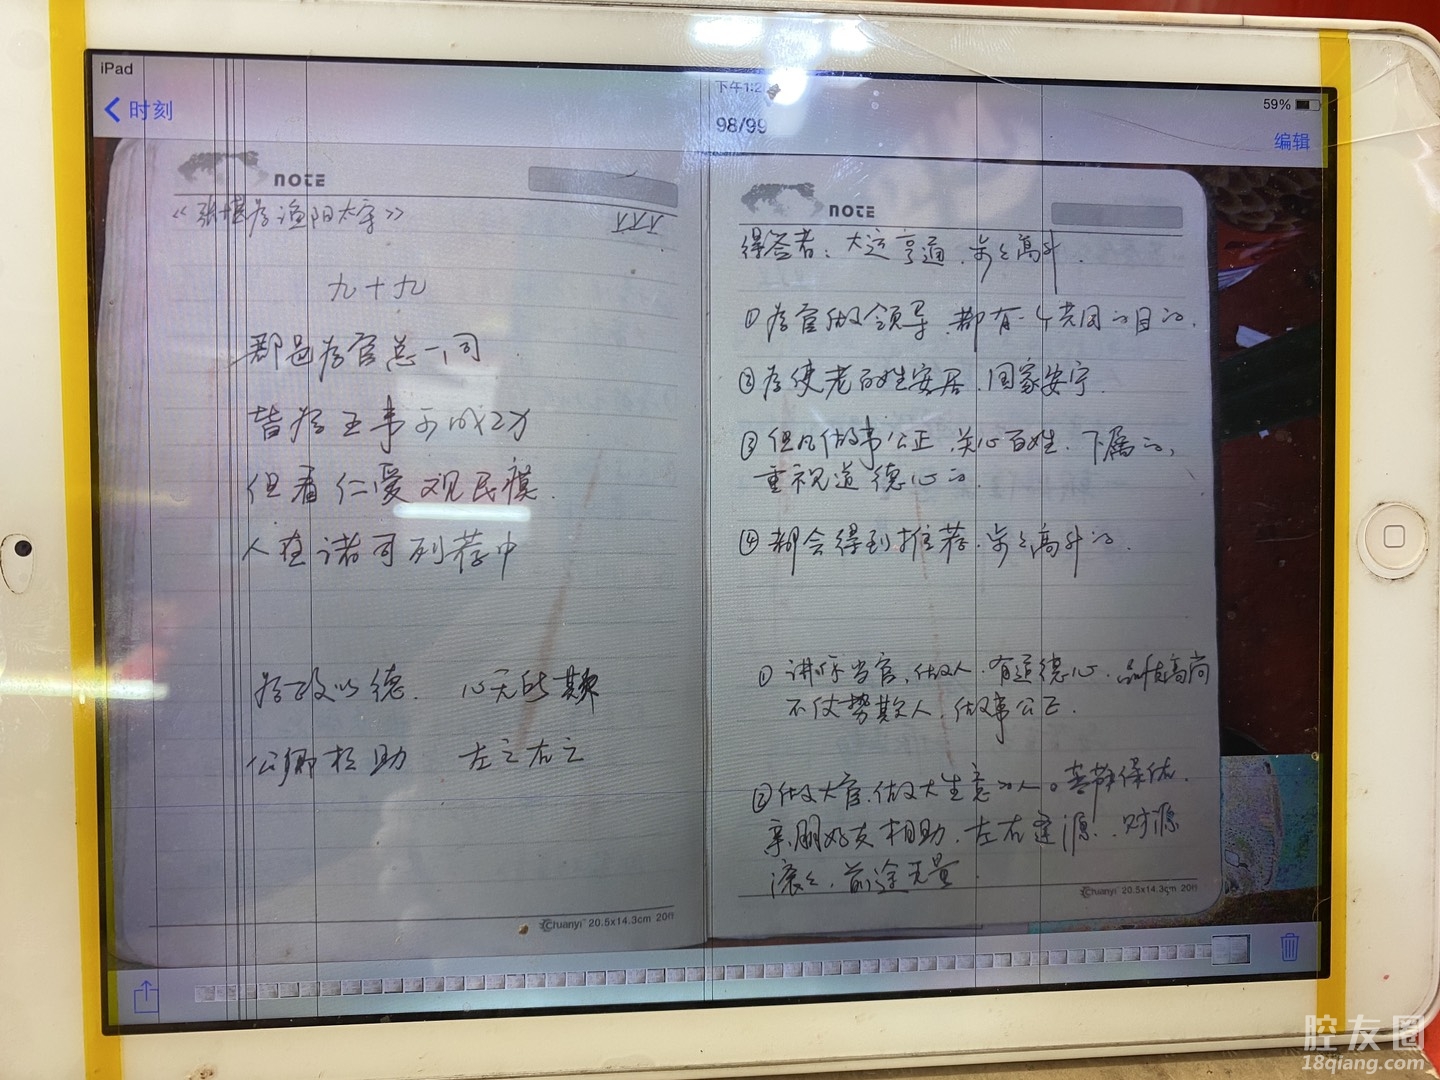 iPad
下午1:2
59%
时刻
98/99
编辑
note
《张堪为渔阳太守》
九十九
郡邑为官总一同
皆为王事示成功
但看仁爱观民瘼
人在诸司列荐中
为政以德 心无所欺
公卿相助 左之右之
Chuanyi 20.5x14.3cm 20行
note
得签者：大运亨通、步步高升.
①为官做领导、都有一个共同的目的.
②为使老百姓安居、国家安宁.
③但凡做事公正、关心百姓、下属的,
重视道德心的.
④都会得到推荐、步步高升的.
①讲你当官,做人,有道德心、品性高尚
不仗势欺人,做事公正.
②做大官,做大生意的人。菩萨保佑.
亲朋好友相助,左右逢源、财源
滚滚,前途无量.
Chuanyi 20.5x14.3cm 20行
腔友圈
18qiang.com